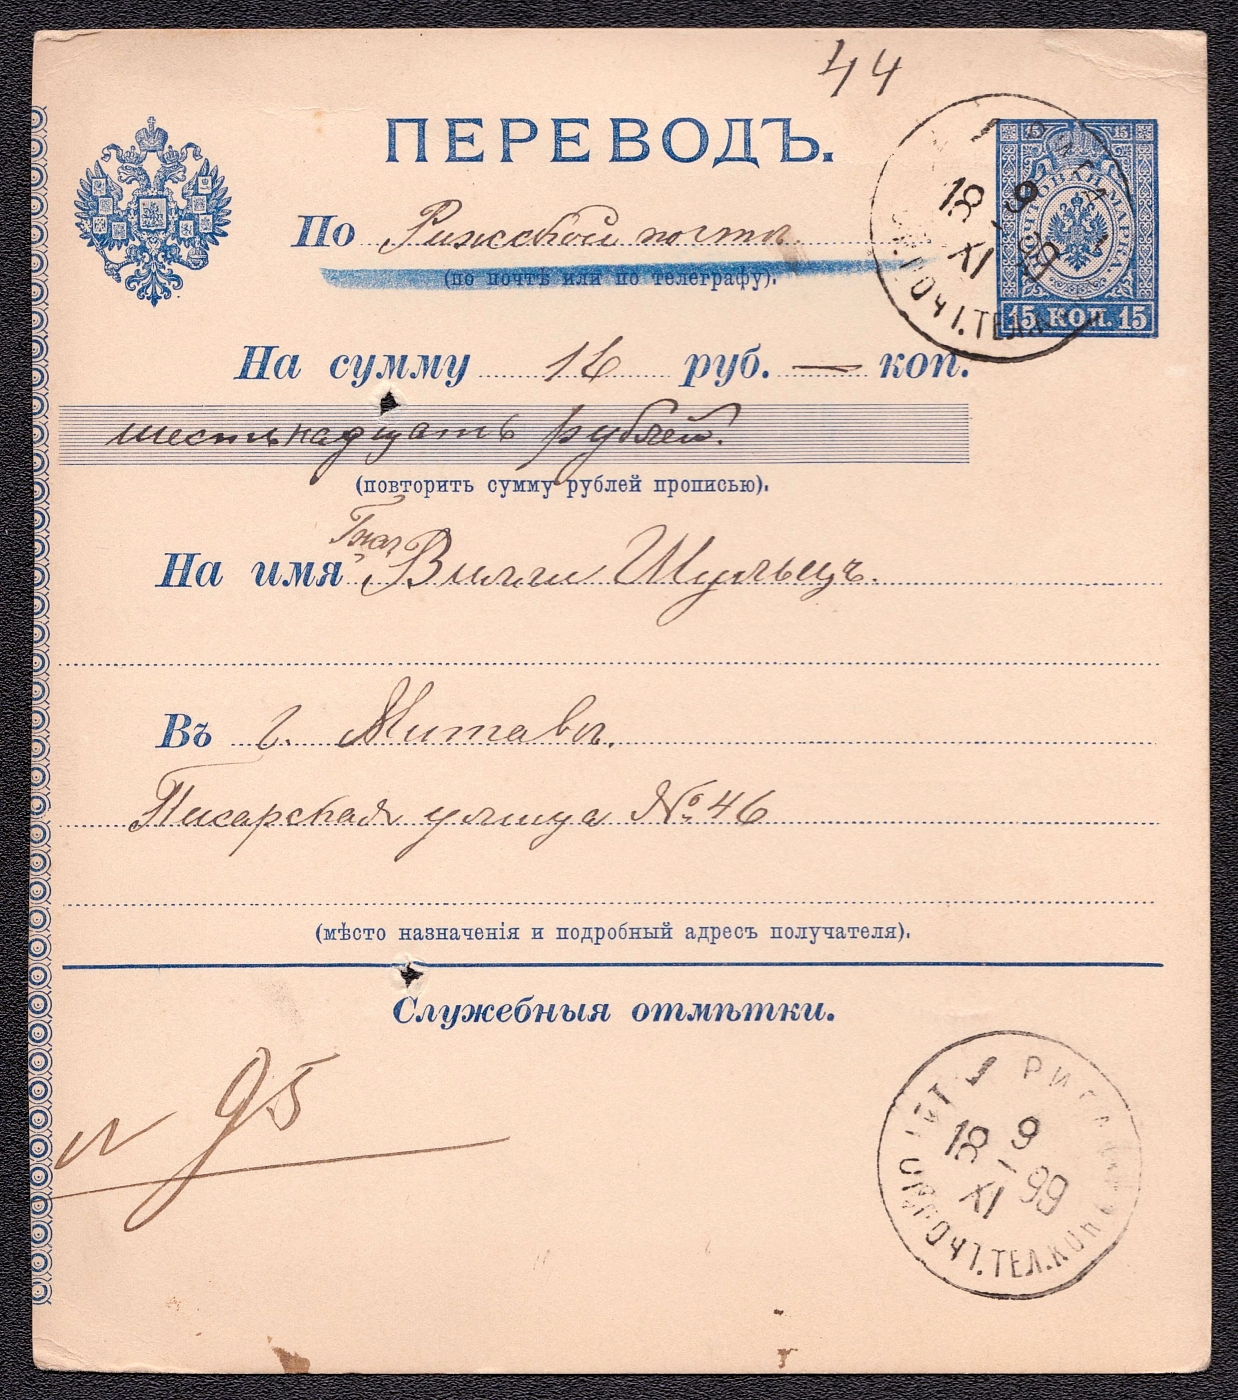 44
ПЕРЕВОДЪ.
По Рижской почтѣ
(по почтѣ или по телеграфу).
15 КОП. 15
На сумму 16 руб. — коп.
шестьнадцать рублей.
(повторить сумму рублей прописью).
На имя Вилли Шульцъ.
Въ г. Митавѣ.
Писарская улица № 46
(мѣсто назначенія и подробный адресъ получателя).
Служебныя отмѣтки.
95
РИГА
18 9 XI 99
ПОЧТ.ТЕЛ.КОН